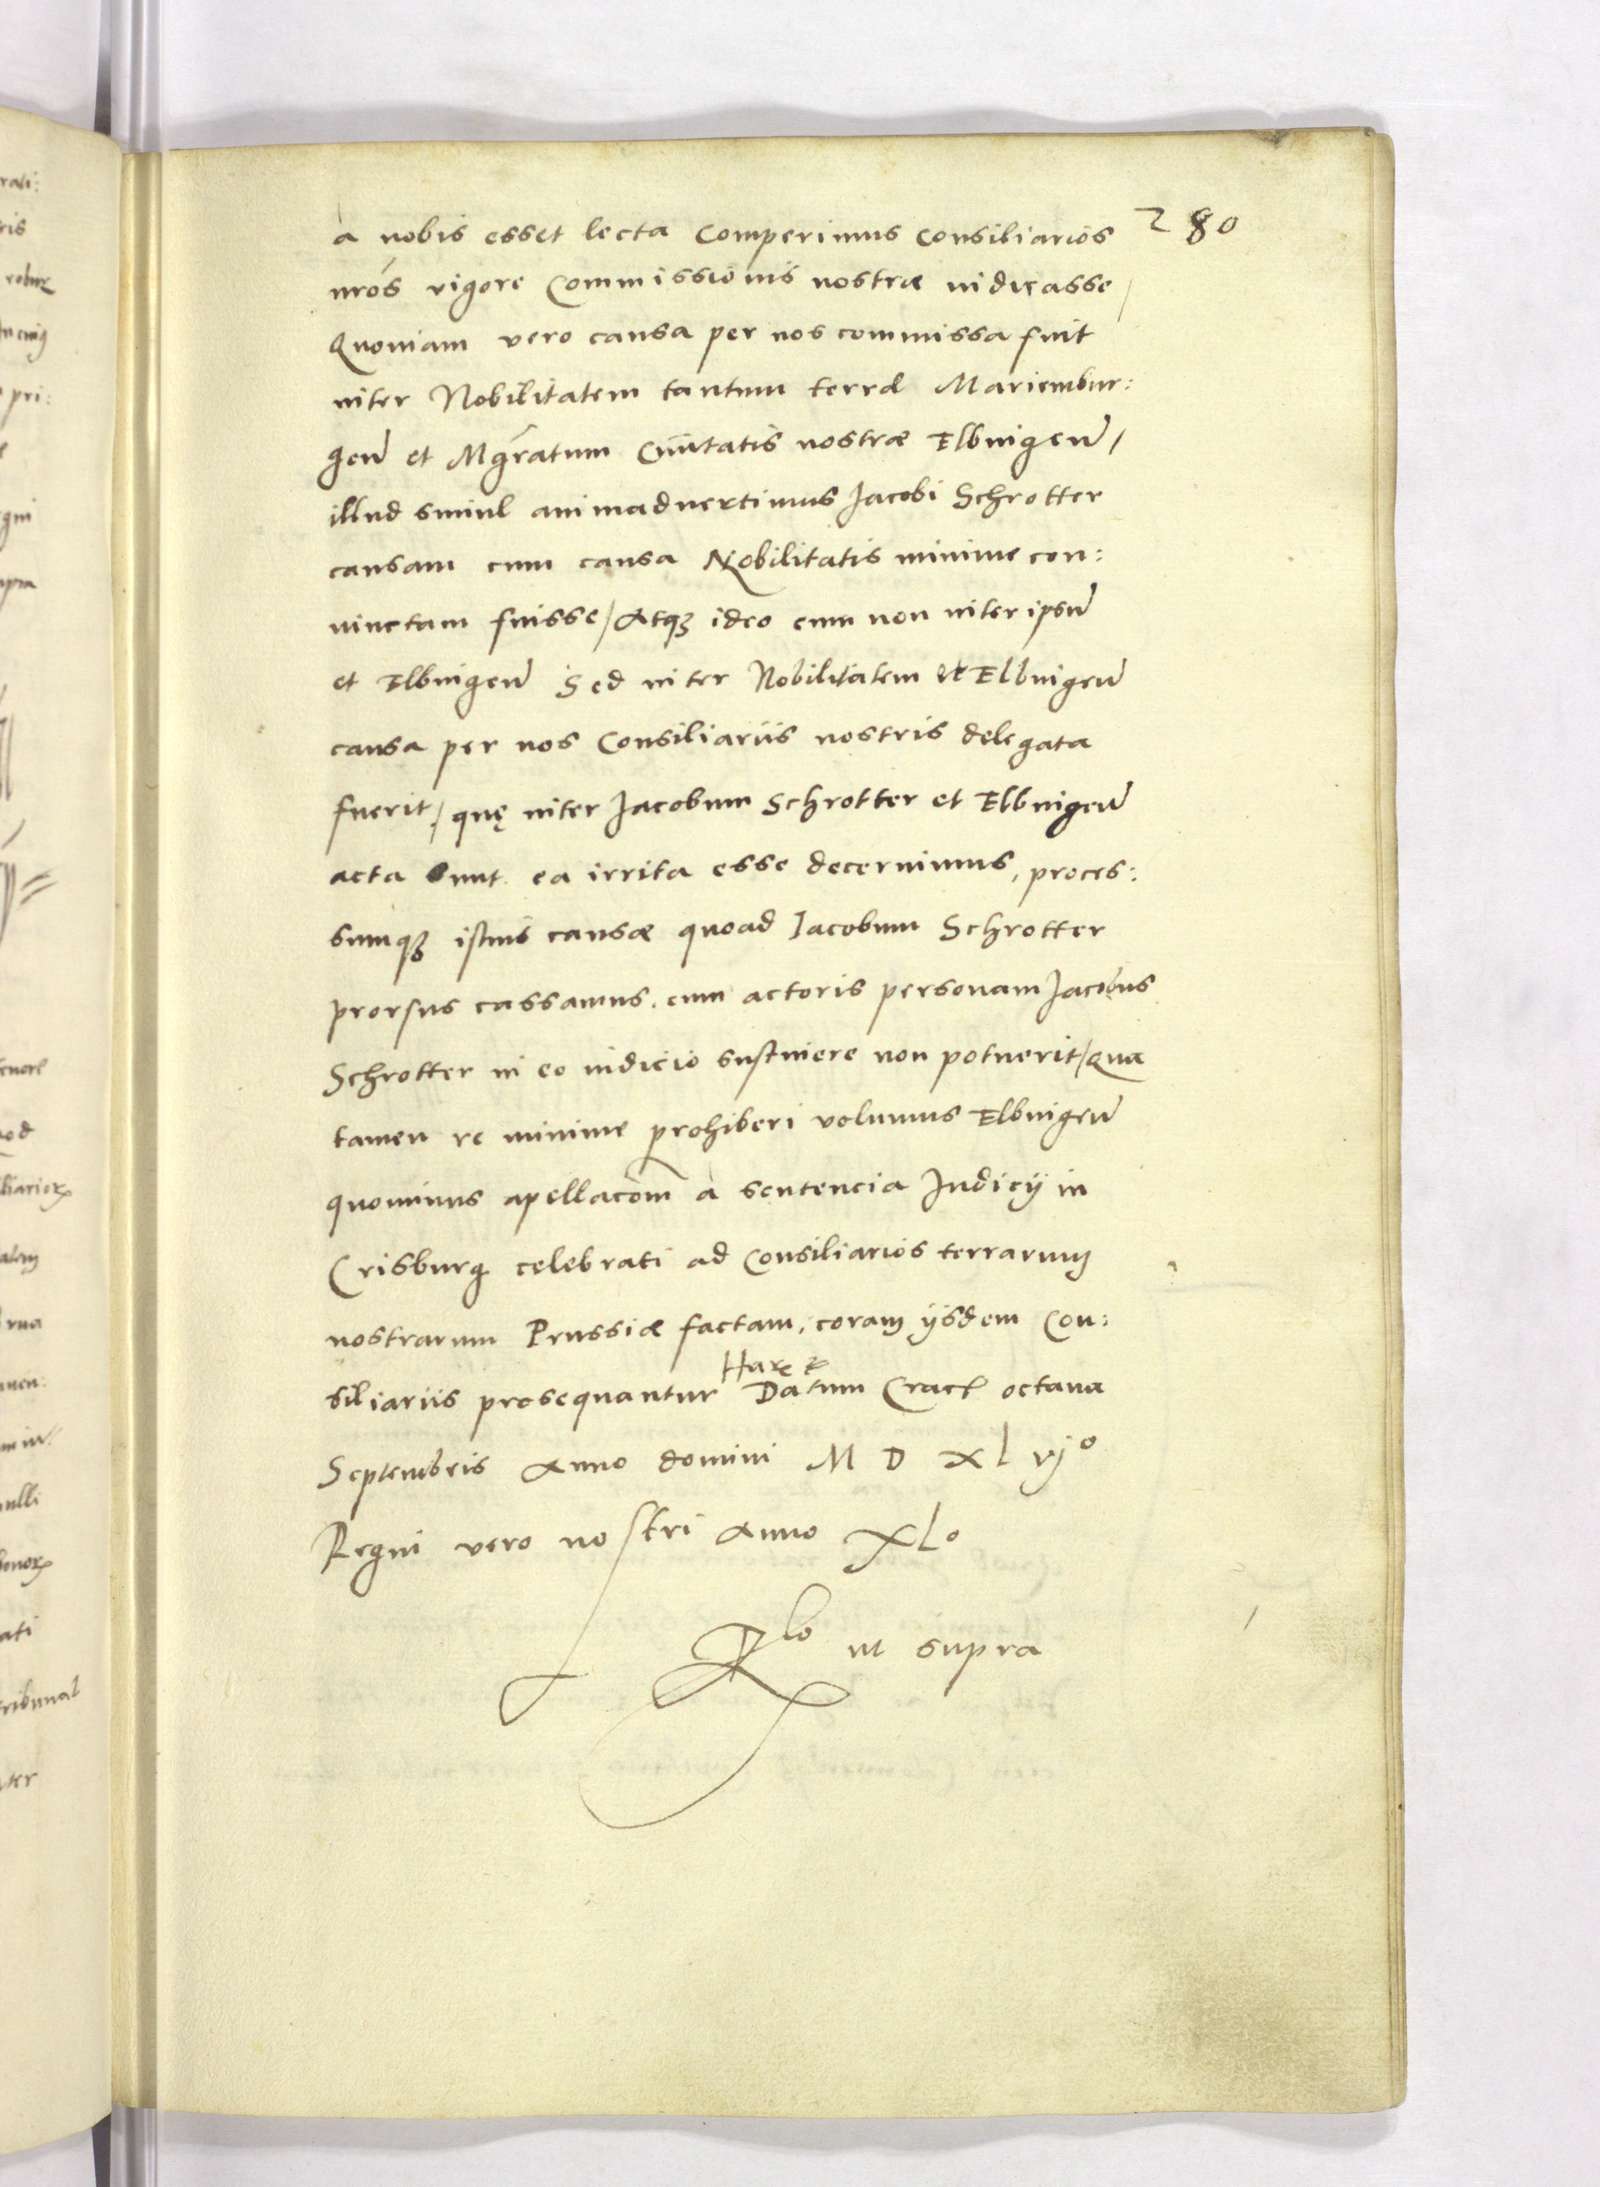 280
a nobis esset lecta Comperimus Consiliarios
nrōs vigore Commissionis nostræ iudicasse /
Quoniam vero causa per nos commissa fuit
inter Nobilitatem tantum terræ Mariembur:
geñ et Mg̃ratum Ciuitatis nostræ Elbingeñ /
illud simul animaduertimus Jacobi Schrotter
causam cum causa Nobilitatis minime con:
iunctam fuisse / Atqꝫ ideo cum non inter ipsũ
et Elbingeñ Sed inter Nobilitatem et Elbingeñ
causa per nos Consiliariis nostris delegata
fuerit / quę inter Jacobum Schrotter et Elbingeñ
acta sunt ea irrita esse decernimus, proces:
sumqꝫ istius causæ quoad Iacobum Schrotter
prorsus cassamus. cum actoris personam Jacobus
Schrotter in eo iudicio sustinere non potuerit / Qua
tamen re minime prohiberi volumus Elbingeñ
quominus apellacōm a sentencia Iudicÿ in
Crisburg celebrati ad Consiliarios terrarum
nostrarum Prussiæ factam, coram ijsdem Con:
siliariis prosequantur Datum Crac octaua
Septembris Anno domini M D XL vjº
Regni vero nostri Anno XLº
Rlo ut supra